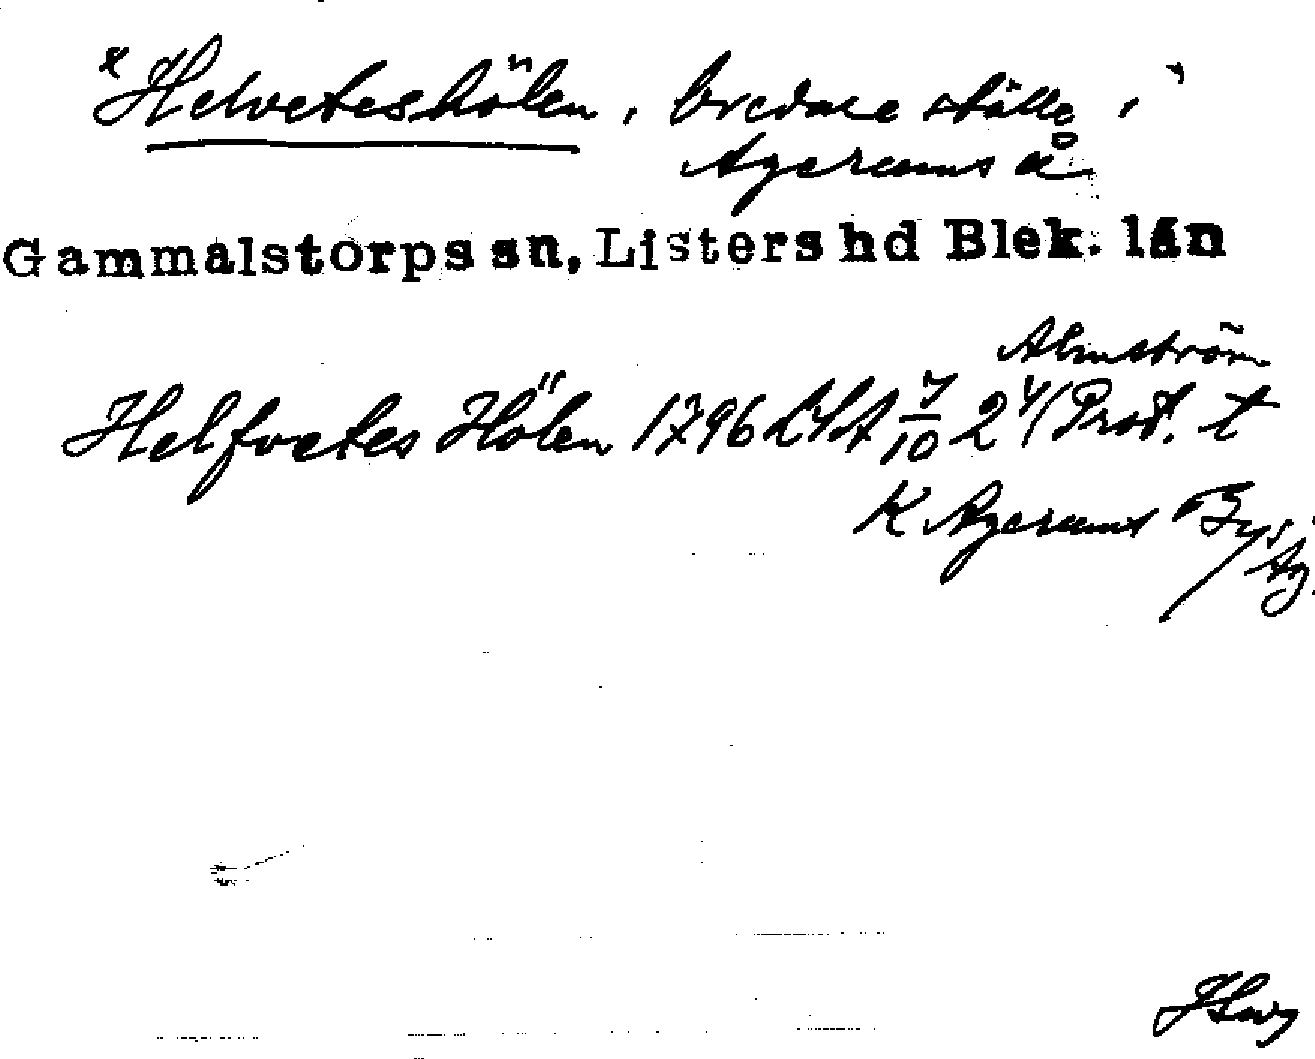 * Helveteshölen, bredare ställe i
Agerums å
Gammalstorps sn, Listers hd Blek. län
Almström
Helfvetes Hölen 1796 LSA 7/10 24 (Prot. t
K Agerums By
Ag.